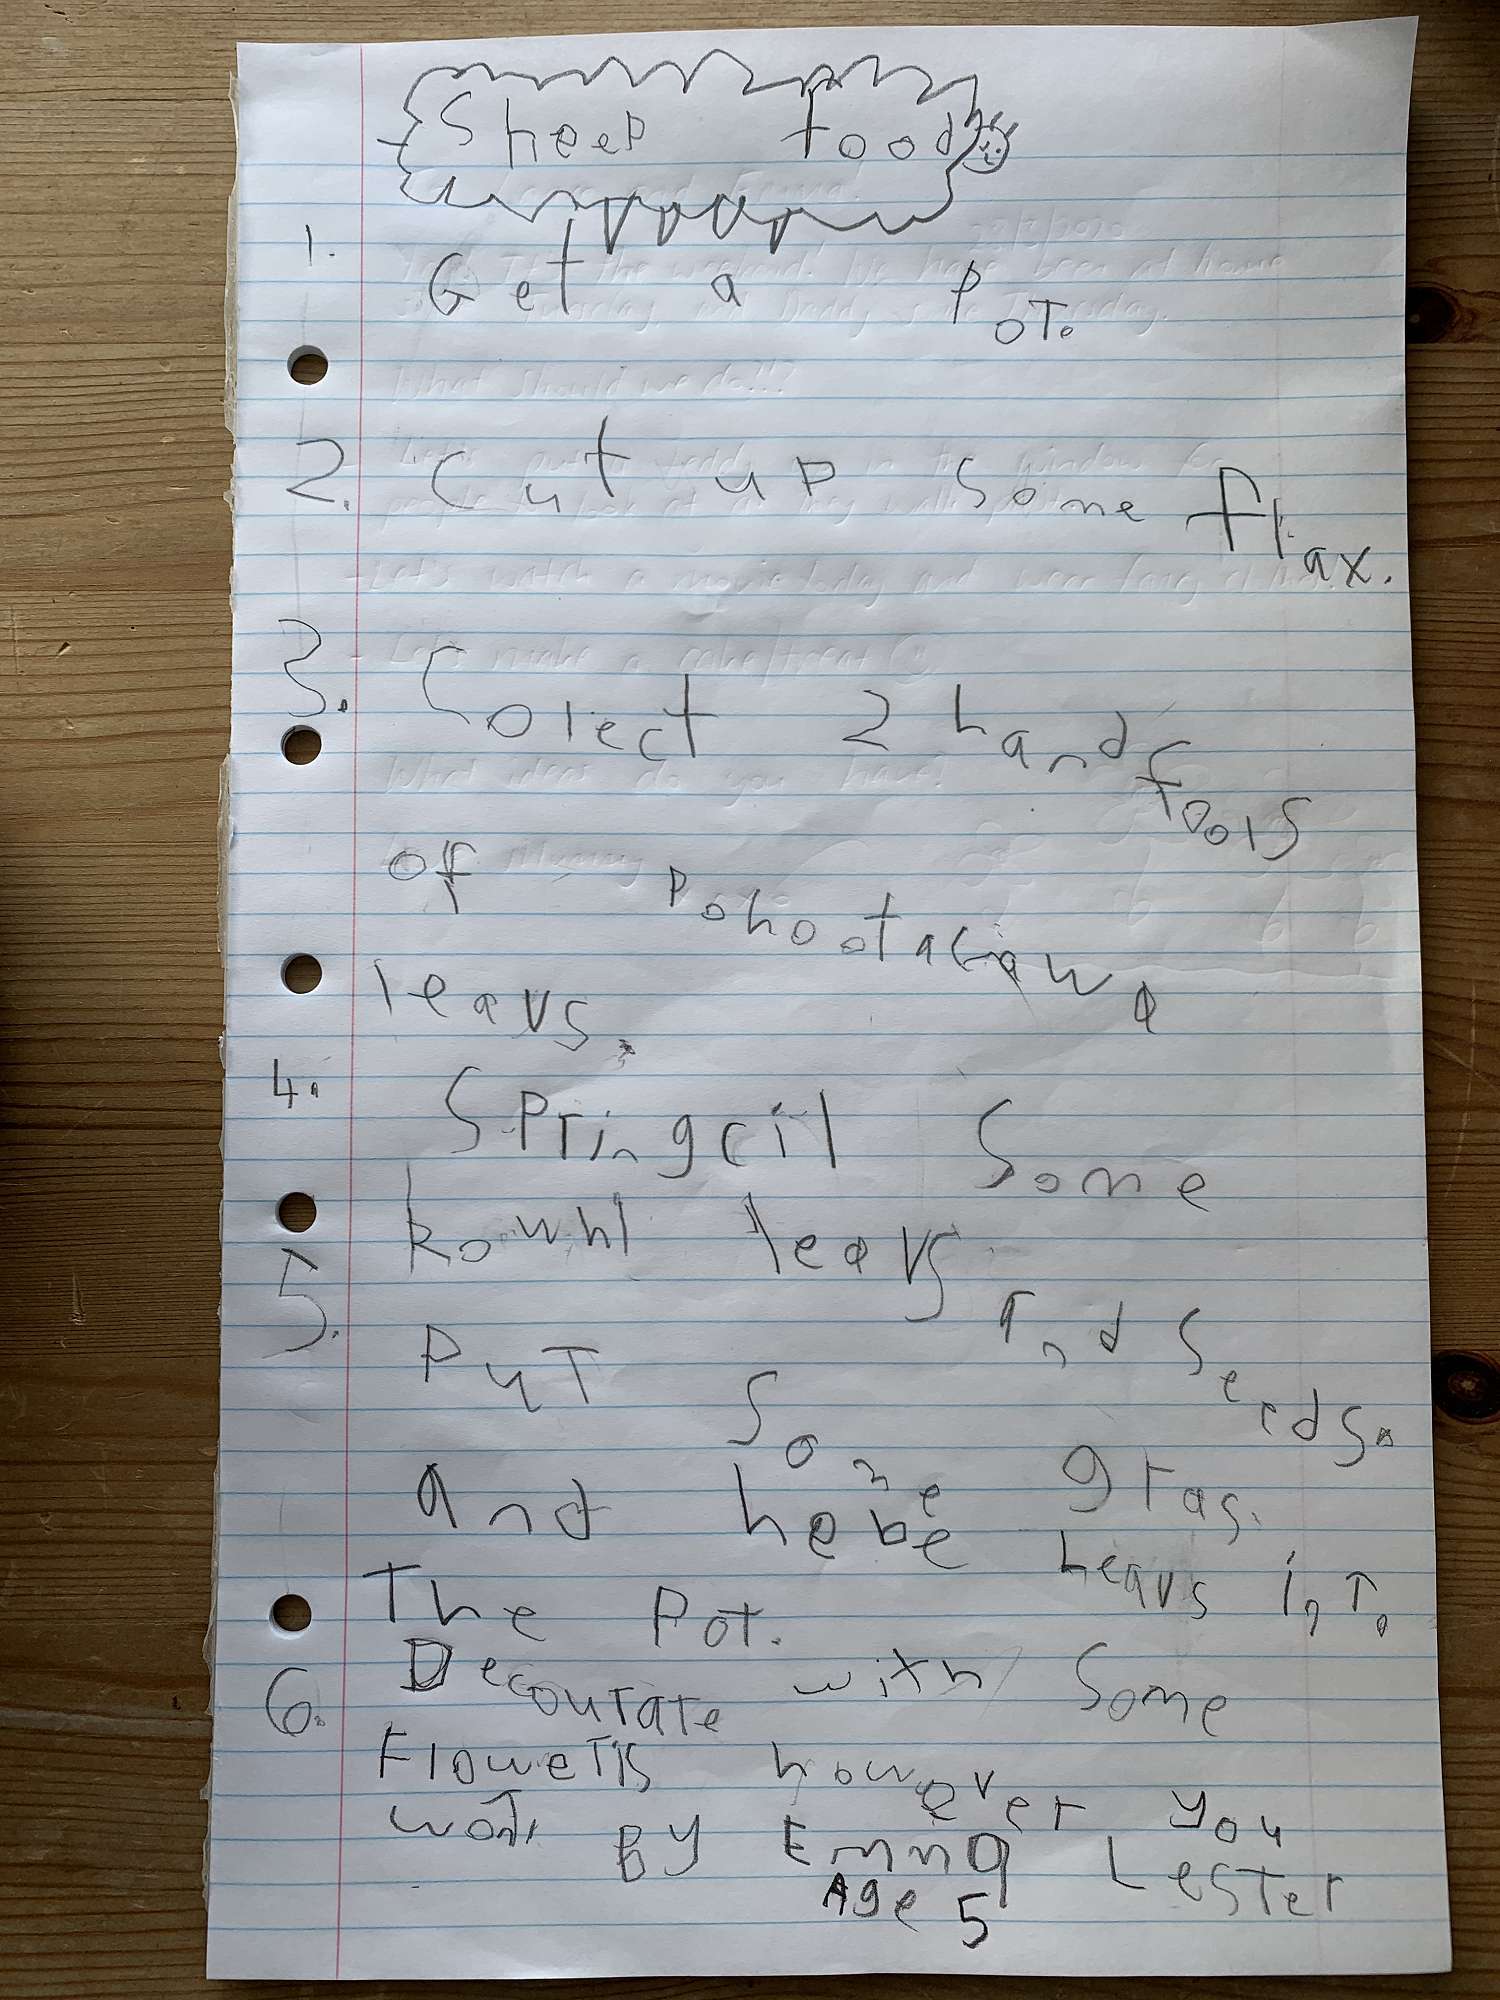 Sheep food
1. Get a pot.
2. cut up some flax.
3. Colect 2 handfools
of pohootacawa
leavs.
4. Springcil some
kowhi leavs and seeds.
5. Put some gras.
and hebe leavs into
The pot.
6. Decourate with some
Flowers however you
wont. By Emma Lester
Age 5